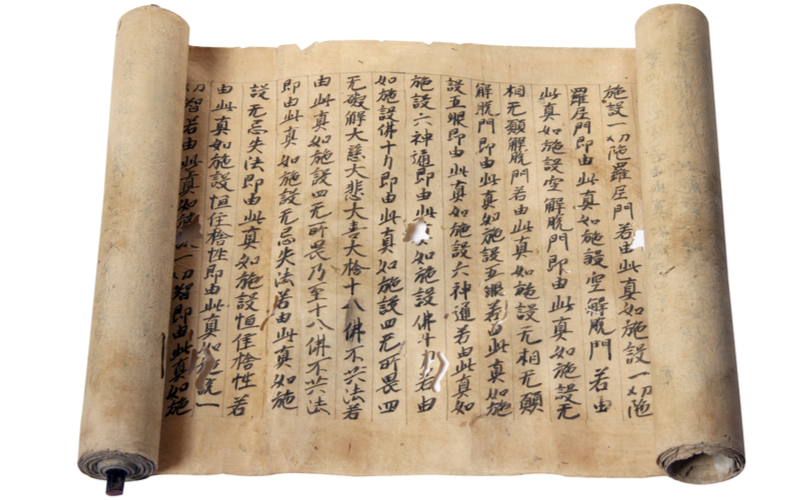 施設一切陁羅尼門若由此真如施設一切陁
羅尼門即由此真如施設空解脫門若由
此真如施設空解脫門即由此真如施設无
相无願解脫門若由此真如施設无相无願
解脫門即由此真如施設五眼若由此真如施
設五眼即由此真如施設六神通若由此真如
施設六神通即由此如施設佛十若由
如施設佛十力即由此真如施設四无所畏四
无礙解大慈大悲大喜大捨十八佛不共法若
由此真如施設四无所畏乃至十八佛不共法
即由此真如施設无忘失法若由此真如施
設无忘失法即由此真如施設恒住捨性若
由此真如施設恒住捨性即由此真如施一
切智若由此真如施一切智即由此真如施